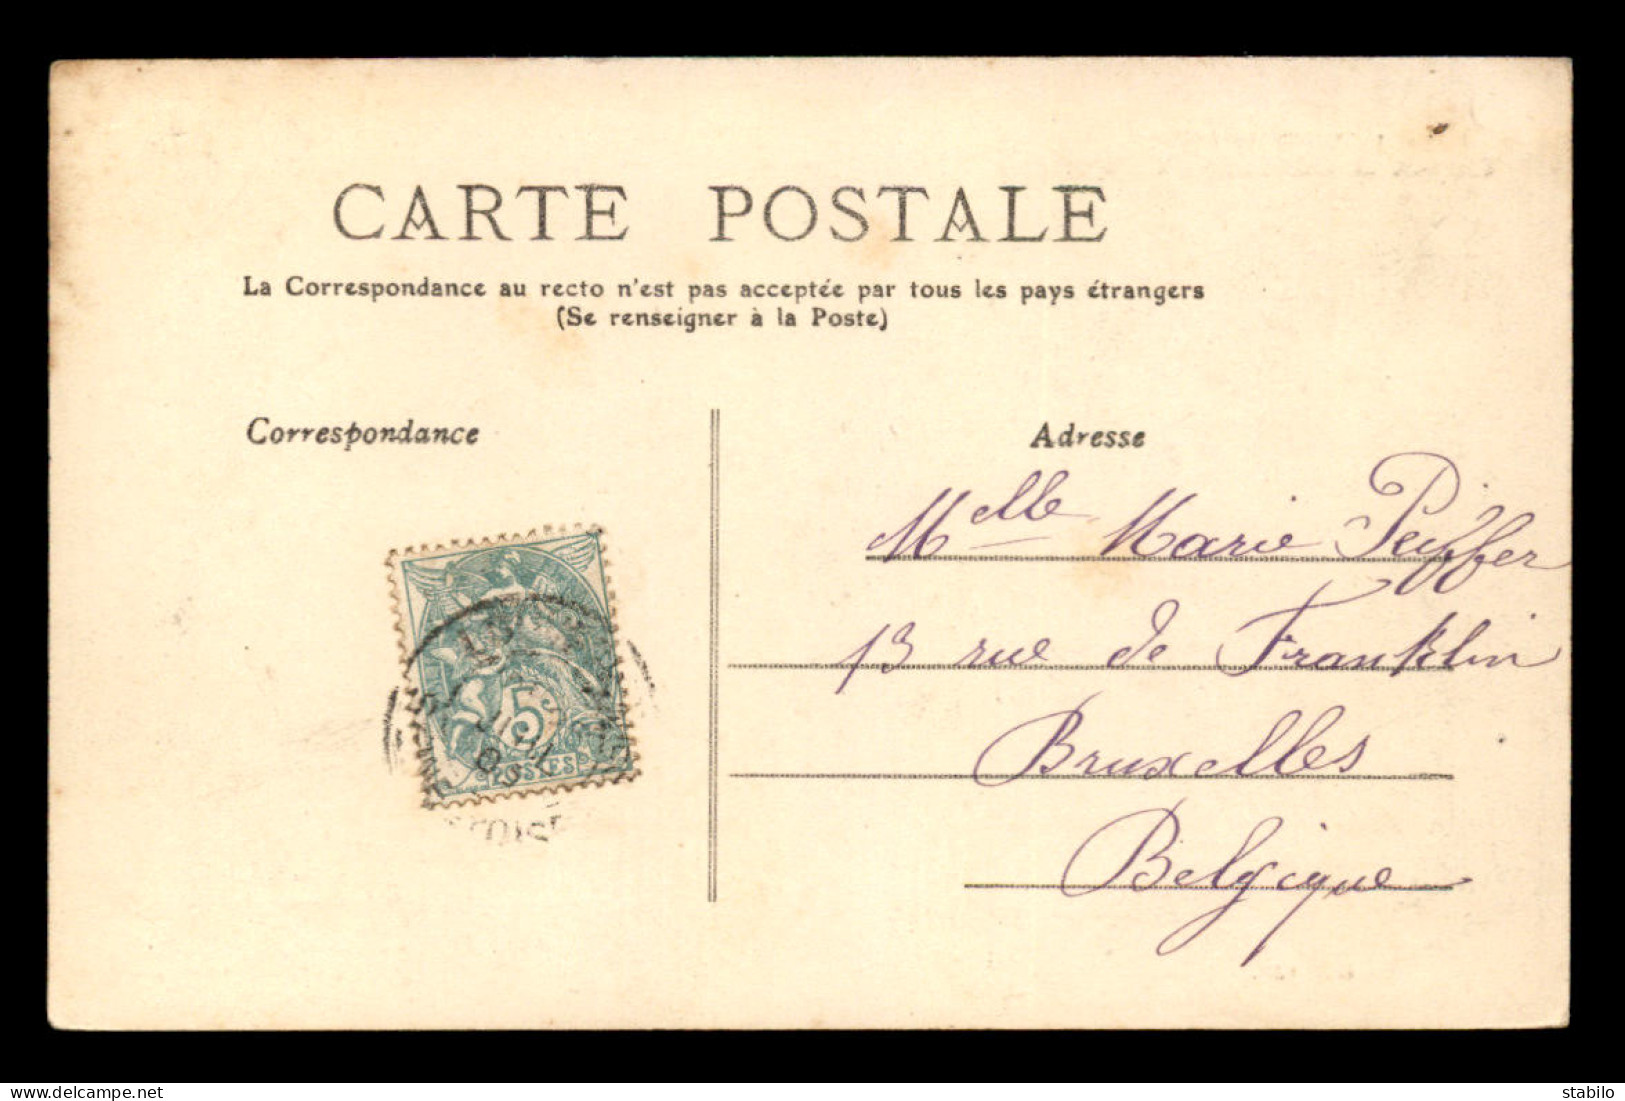 CARTE POSTALE
La Correspondance au recto n'est pas acceptée par tous les pays étrangers
(Se renseigner à la Poste)
Correspondance
Adresse
Melle Marie Peiffer
13 rue de Franklin
Bruxelles
Belgique
5
POSTES
stabilo